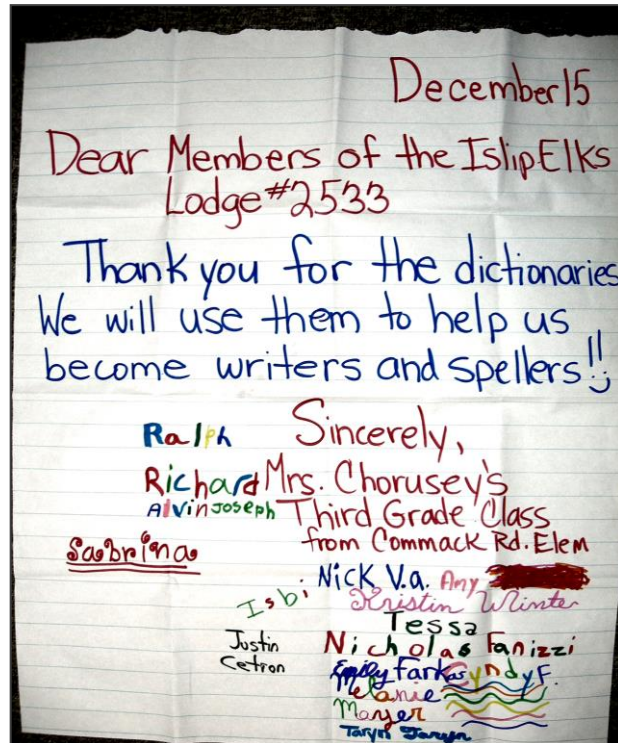 December 15
Dear Members of the Islip Elks
Lodge #2533
Thank you for the dictionaries
We will use them to help us
become writers and spellers!!
Sincerely,
Ralph
Richard
Mrs. Chorusey's
Alvin Joseph
Third Grade Class
from Commack Rd. Elem
Sabrina
Nick V.a. Amy
Isbi
Kristin Winter
Tessa
Justin
Cetron
Nicholas Fanizzi
Emily Farkas Cyndy F.
Melanie
Mayer
Taryn Taryn